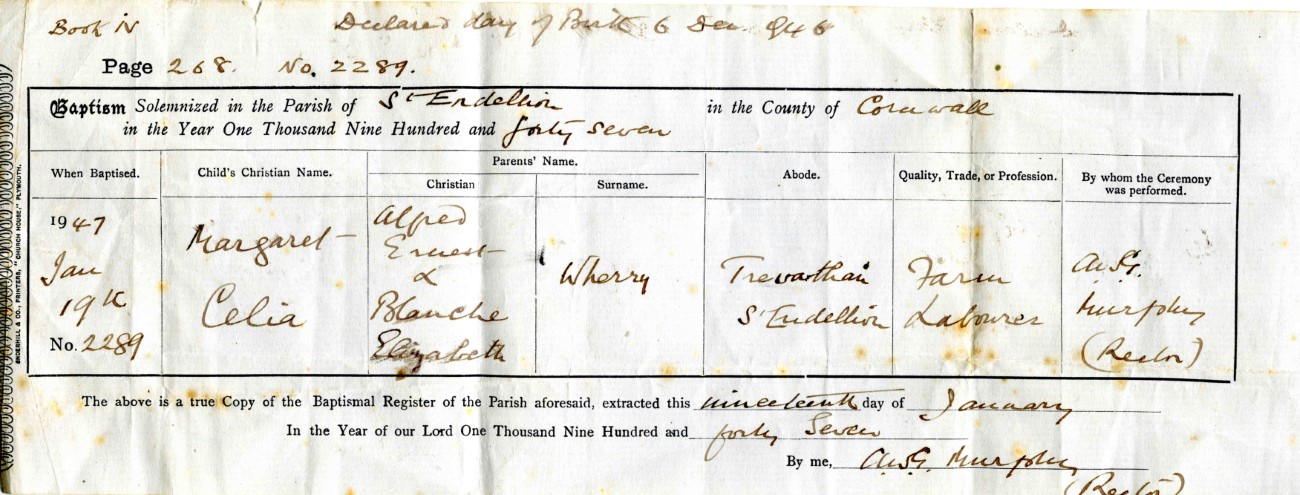 Book N
Declared day of Birth 6 Dec 1946
Page 268. No. 2289.
Baptism Solemnized in the Parish of St Endellion in the County of Cornwall
in the Year One Thousand Nine Hundred and forty seven
When Baptised.
Child's Christian Name.
Parents' Name.
Christian
Surname.
Abode.
Quality, Trade, or Profession.
By whom the Ceremony
was performed.
1947
Jan
19th
No. 2289
Margaret
Celia
Alfred
Ernest
&
Blanche
Elizabeth
Wherry
Trevathan
St Endellion
Farm
Labourer
Murphy
(Rector)
The above is a true Copy of the Baptismal Register of the Parish aforesaid, extracted this nineteenth day of January
In the Year of our Lord One Thousand Nine Hundred and forty Seven
By me, Murphy
(Rector)
UNDERHILL & CO., PRINTERS, "CHURCH HOUSE," PLYMOUTH.